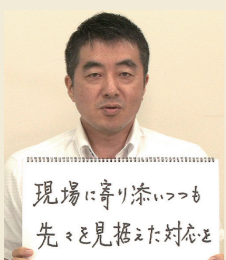 現場に寄り添いつつも
先々を見据えた対応を